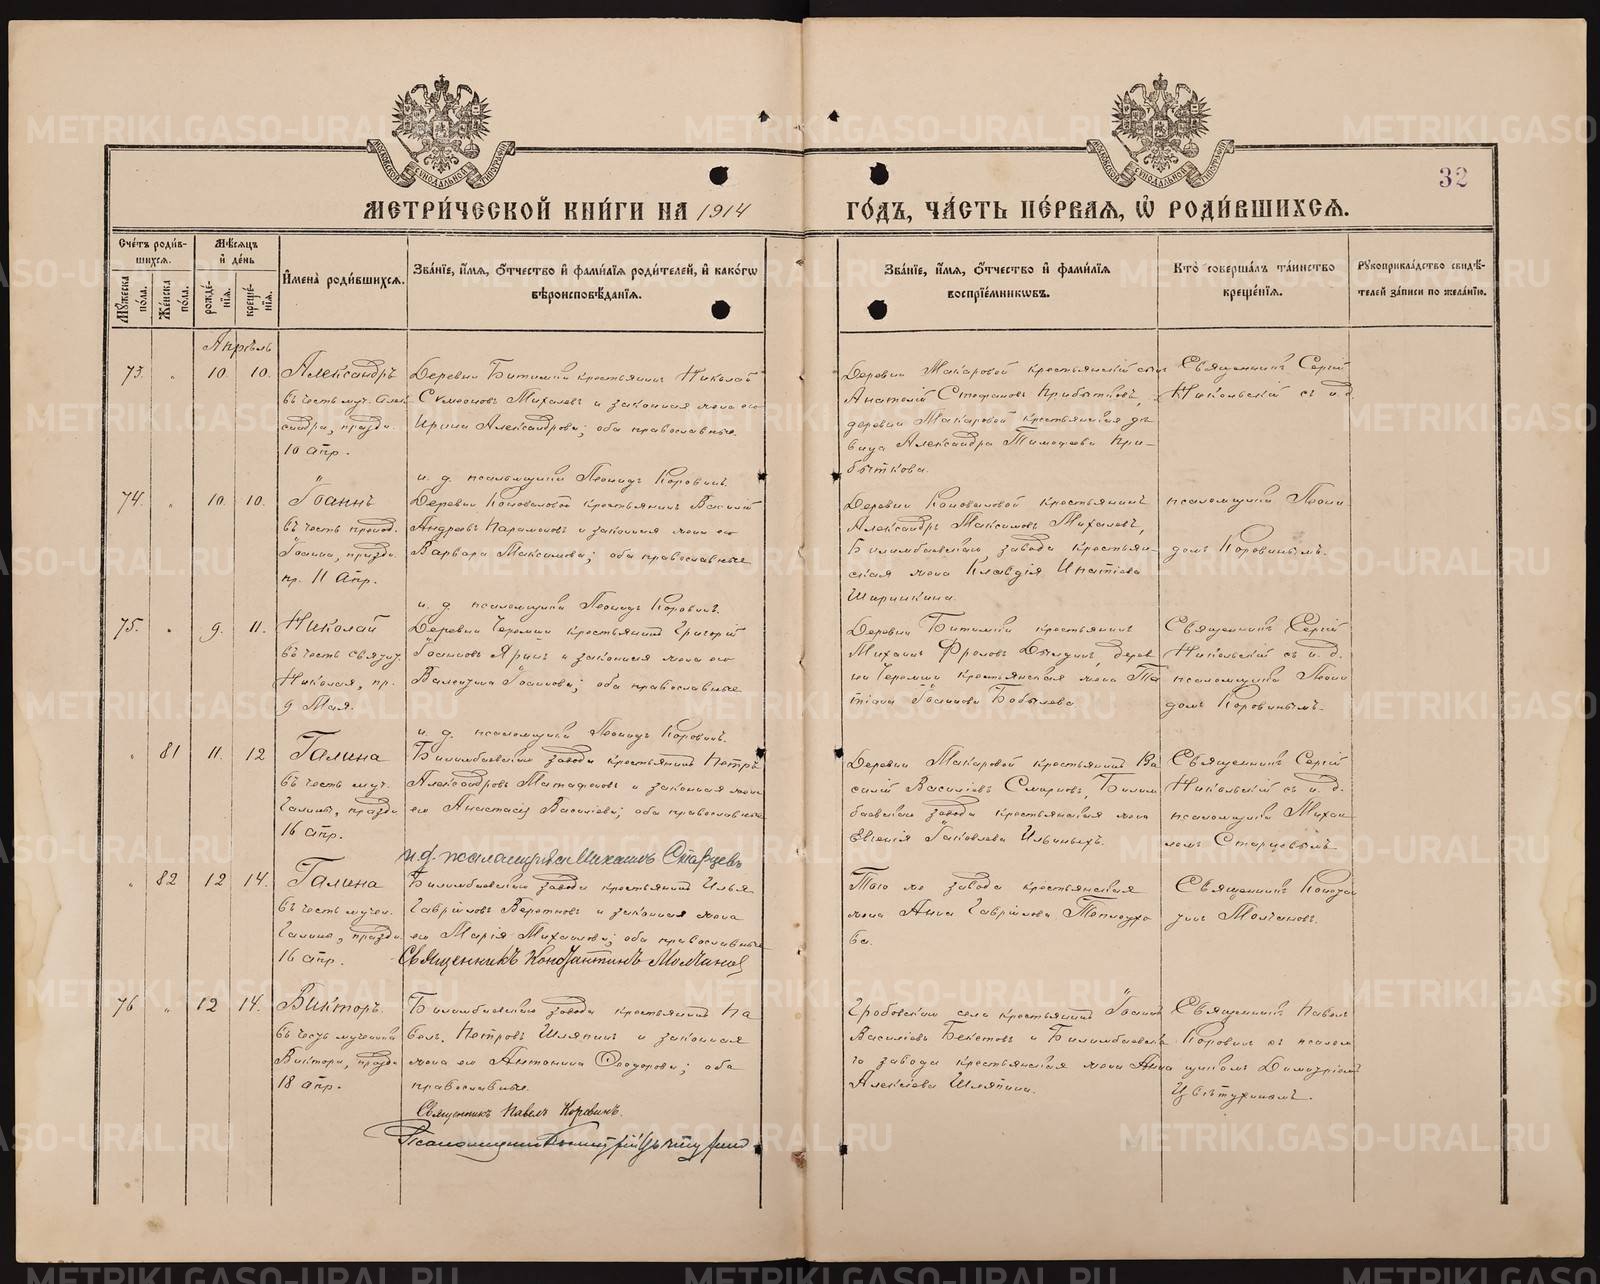 МОСКОВСКОЙ СѴНОДАЛЬНОЙ ТИПОГРАФІИ
МОСКОВСКОЙ СѴНОДАЛЬНОЙ ТИПОГРАФІИ
32
МЕТРИ́ЧЕСКОЙ КНИ́ГИ НА 1914 ГО́ДЪ, ЧА́СТЬ ПЕ́РВАѦ, Ѡ҆ РОДИ́ВШИХСѦ.
Сче́тъ роди́в-
шихсѧ.
Мꙋ́жеска по́ла.
Же́нска по́ла.
Мѣ́сѧцъ
и҆ де́нь
рожде́-
нїѧ.
креще́-
нїѧ.
И҆мена̀ роди́вшихсѧ.
Зва́нїе, и҆́мѧ, ѻ҆́тчество и҆ фами́лїѧ роди́телей, и҆ како́гѡ
вѣроисповѣ́данїѧ.
Зва́нїе, и҆́мѧ, ѻ҆́тчество и҆ фами́лїѧ
воспрїе́мникѡвъ.
Кто̀ соверша́лъ та́инство
креще́нїѧ.
Рꙋкоприкла́дство свидѣ́-
телей за́писи по жела́нїю.
Апрѣль
73. " 10. 10. Александръ
въ честь муч. Алек
сандра, праздн.
10 апр.
Деревни Битимки крестьянинъ Николай
Симеоновъ Михалевъ и законная жена его
Ирина Александрова; оба православные.
и. д. псаломщика Леонидъ Коровинъ.
Деревни Макаровой крестьянскій сынъ
Анатолій Стефановъ Прибытковъ,
деревни Макаровой крестьянская дѣ
вица Александра Тимофеева При-
быткова.
Священникъ Сергій
Никольскій съ и. д.
74. " 10. 10. Іоаннъ
въ честь препод.
Іоанна, праздн.
пр. 11 апр.
Деревни Коноваловой крестьянинъ Василій
Андреевъ Парамоновъ и законная жена его
Варвара Максимова; оба православные
и. д. псаломщика Леонидъ Коровинъ.
Деревни Коноваловой крестьянинъ
Александръ Максимовъ Михалевъ,
Билимбаевскаго завода крестьян-
ская жена Клавдія Игнатіева
Ширинкина.
псаломщика Леони
домъ Коровинымъ.
75. " 9. 11. Николай
въ честь святит.
Николая, пр.
9 Мая.
Деревни Черемши крестьянинъ Григорій
Іоанновъ Яринъ и законная жена его
Валентина Іоаннова; оба православные
и. д. псаломщика Леонидъ Коровинъ.
Деревни Битимки крестьянинъ
Михаилъ Фроловъ Дылдинъ, дерев
ни Черемши крестьянская жена Та
тіана Іоаннова Бобылева
Священникъ Сергій
Никольскій съ и. д.
псаломщика Леони
домъ Коровинымъ.
" 81 11. 12 Галина
въ честь муч.
Галины, праздн.
16 апр.
Билимбаевскаго завода крестьянинъ Петръ
Александровъ Матафоновъ и законная жена
его Анастасія Василіева; оба православные
и. д. псаломщика Михаилъ Старцевъ
Деревни Макаровой крестьянинъ Ва
силій Василіевъ Смирновъ, Билим
баевскаго завода крестьянская жена
Евгенія Іаковлева Ильиныхъ.
Священникъ Сергій
Никольскій съ и. д.
псаломщика Михаи
ломъ Старцевымъ
" 82 12 14. Галина
въ честь мучен.
Галины, праздн.
16 апр.
Билимбаевскаго завода крестьянинъ Илья
Гавріиловъ Веретновъ и законная жена
его Марія Михаилова; оба православные
Священникъ Константинъ Молчановъ
Того же завода крестьянская
жена Анна Гавріилова Теплоухо
ва.
Священникъ Констан
тинъ Молчановъ.
76 " 12 14. Викторъ.
въ честь мученика
Виктора, праздн.
18 апр.
Билимбаевскаго завода крестьянинъ Па
велъ Петровъ Шляпинъ и законная
жена его Антонина Ѳеодорова; оба
православные.
Священникъ Павелъ Коровинъ.
Псаломщикъ Димитрій Цвѣтухинъ
Гробовскаго села крестьянинъ Іоаннъ
Василіевъ Бекетовъ и Билимбаевска
го завода крестьянская жена Анна
Алексіева Шляпина.
Священникъ Павелъ
Коровинъ съ псалом
щикомъ Димитріемъ
Цвѣтухинымъ.
METRIKI.GASO-URAL.RU